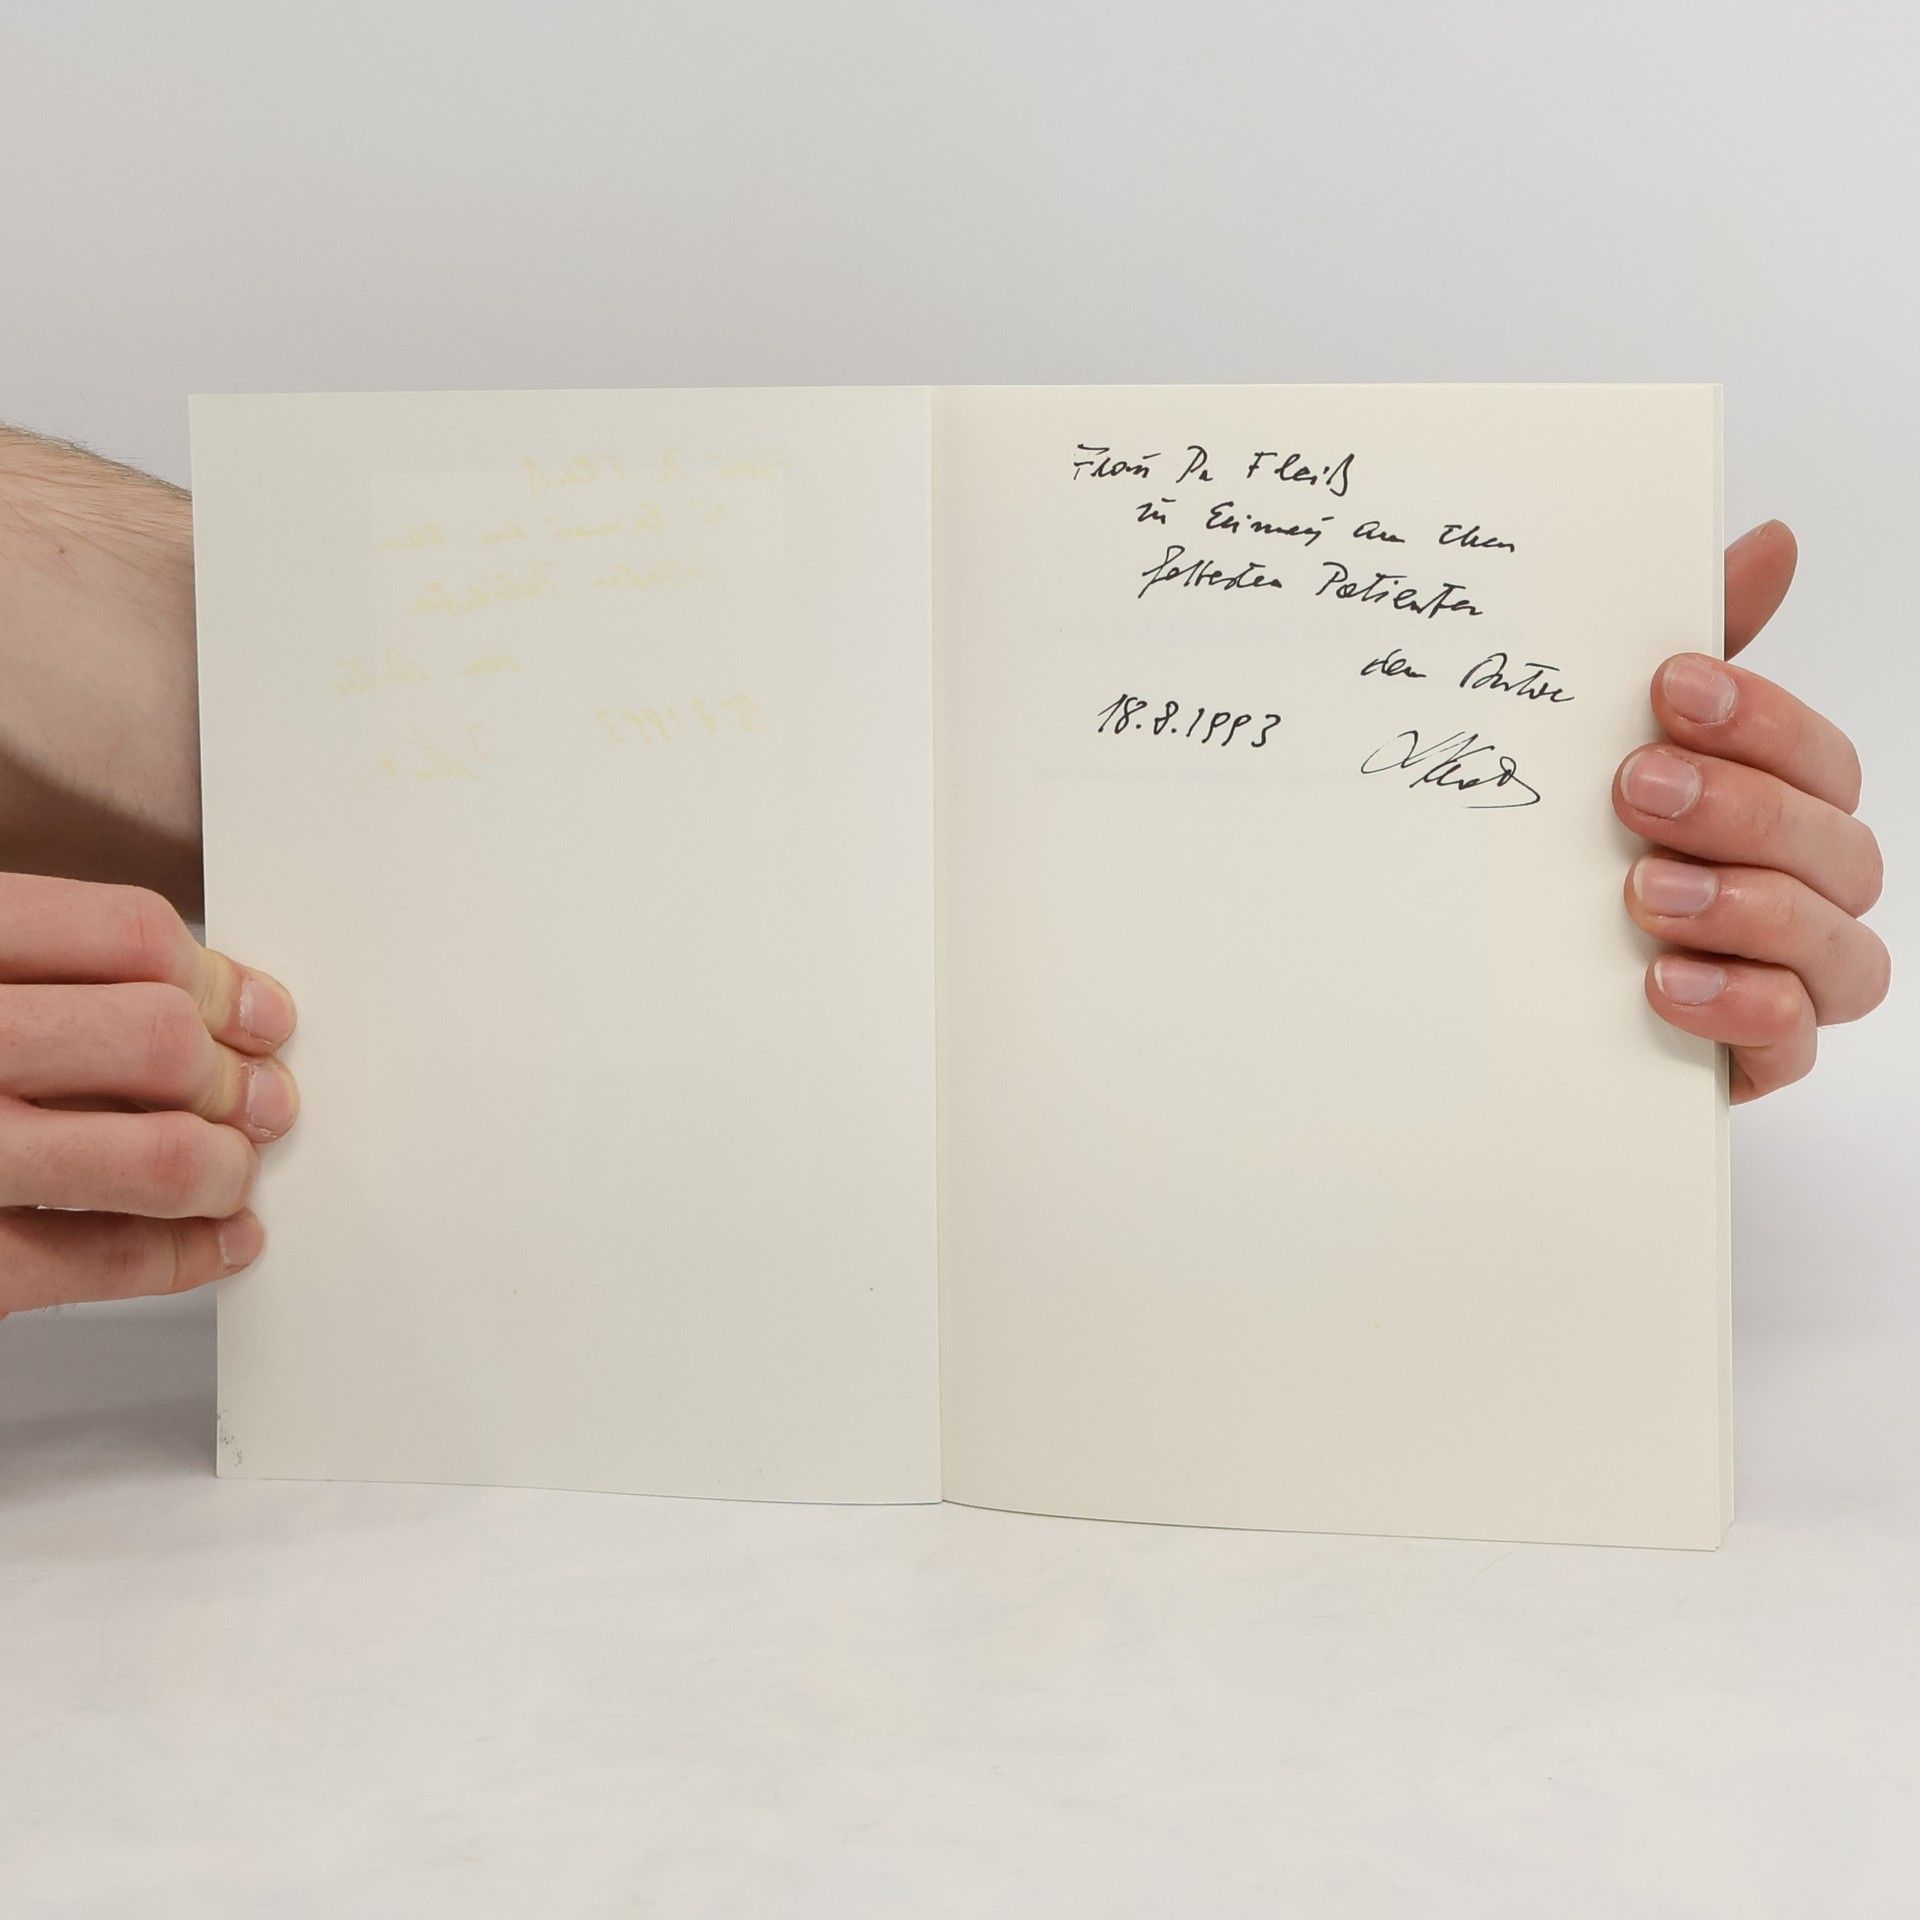 Frau Dr Fleiß
zu Erinnerg an Ihren
Patienten
der Autor
18.8.1993